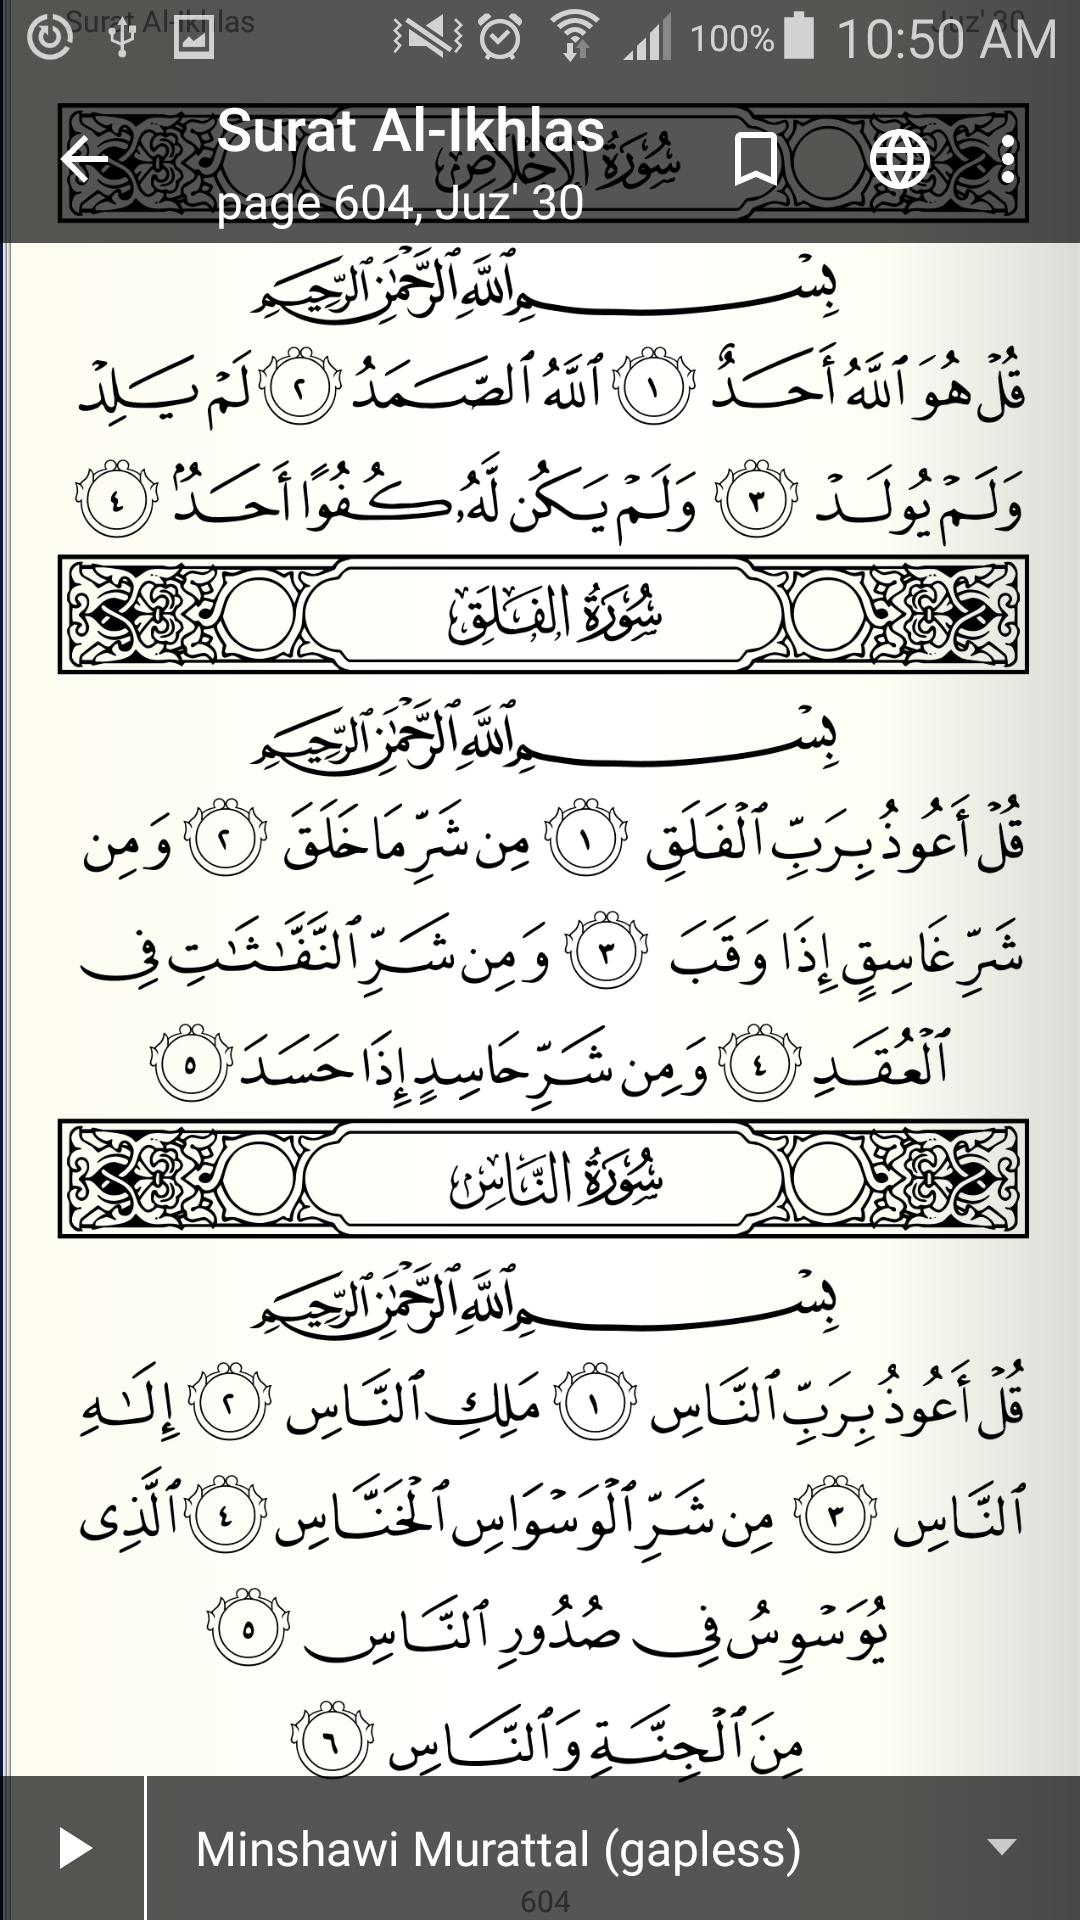 Surat Al-Ikhlas Juz' 30
100% 10:50 AM
Surat Al-Ikhlas
page 604, Juz' 30
سُورَةُ الإِخْلَاصِ
بِسْمِ ٱللَّهِ ٱلرَّحْمَٰنِ ٱلرَّحِيمِ
قُلْ هُوَ ٱللَّهُ أَحَدٌ ١ ٱللَّهُ ٱلصَّمَدُ ٢ لَمْ يَلِدْ
وَلَمْ يُولَدْ ٣ وَلَمْ يَكُن لَّهُۥ كُفُوًا أَحَدٌۢ ٤
سُورَةُ الفَلَقِ
بِسْمِ ٱللَّهِ ٱلرَّحْمَٰنِ ٱلرَّحِيمِ
قُلْ أَعُوذُ بِرَبِّ ٱلْفَلَقِ ١ مِن شَرِّ مَا خَلَقَ ٢ وَمِن
شَرِّ غَاسِقٍ إِذَا وَقَبَ ٣ وَمِن شَرِّ ٱلنَّفَّٰثَٰتِ فِى
ٱلْعُقَدِ ٤ وَمِن شَرِّ حَاسِدٍ إِذَا حَسَدَ ٥
سُورَةُ النَّاسِ
بِسْمِ ٱللَّهِ ٱلرَّحْمَٰنِ ٱلرَّحِيمِ
قُلْ أَعُوذُ بِرَبِّ ٱلنَّاسِ ١ مَلِكِ ٱلنَّاسِ ٢ إِلَٰهِ
ٱلنَّاسِ ٣ مِن شَرِّ ٱلْوَسْوَاسِ ٱلْخَنَّاسِ ٤ ٱلَّذِى
يُوَسْوِسُ فِى صُدُورِ ٱلنَّاسِ ٥
مِنَ ٱلْجِنَّةِ وَٱلنَّاسِ ٦
Minshawi Murattal (gapless)
604